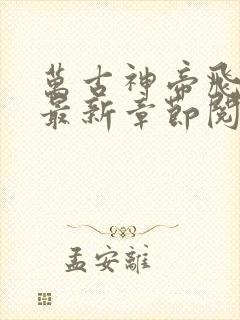 萬古神帝飛
最新章節閱
孟安離